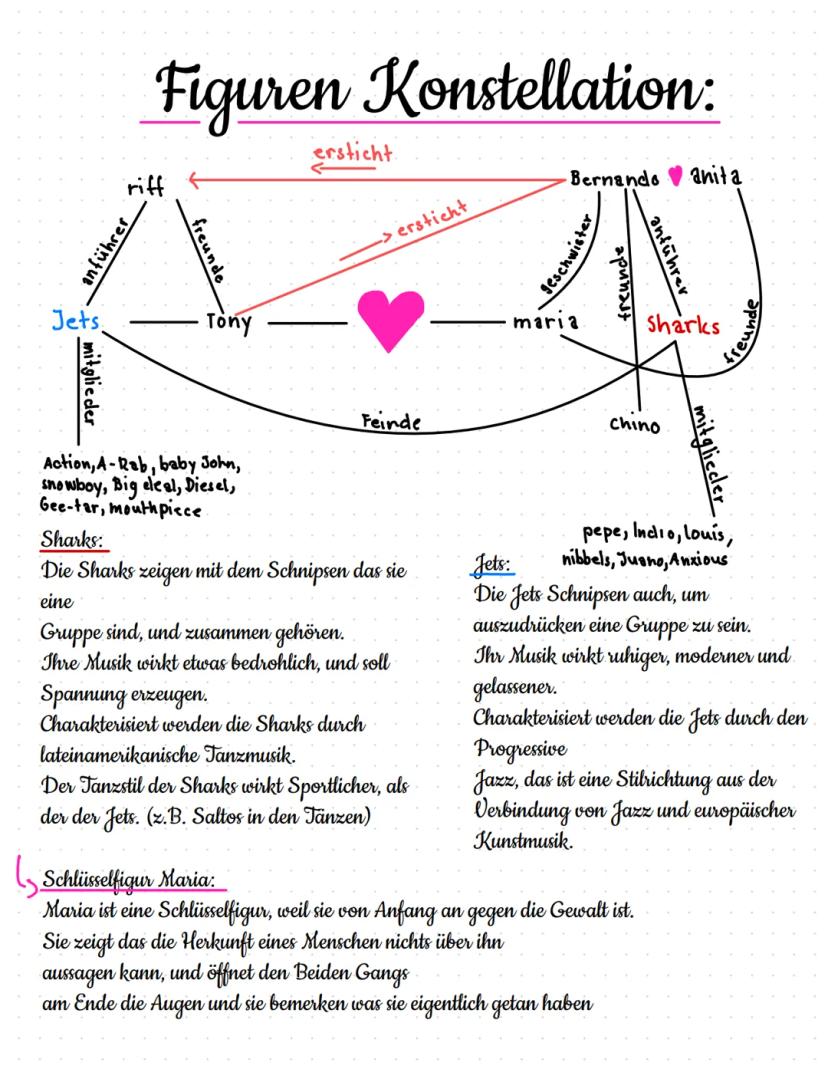 Figuren Konstellation:
ersticht
riff
Bernando anita
ersticht
anführer
freunde
geschwister
freunde
anführer
Jets
Tony
maria
Sharks
freunde
mitglieder
Feinde
Chino
mitglieder
Action, A-Rab, baby John,
snowboy, Big deal, Diesel,
Gee-tar, mouthpiece
pepe, Indio, Louis,
nibbels, Juano, Anxious
Sharks:
Die Sharks zeigen mit dem Schnipsen das sie
eine
Gruppe sind, und zusammen gehören.
Ihre Musik wirkt etwas bedrohlich, und soll
Spannung erzeugen.
Charakterisiert werden die Sharks durch
lateinamerikanische Tanzmusik.
Der Tanzstil der Sharks wirkt Sportlicher, als
der der Jets. (z.B. Saltos in den Tänzen)
Jets:
Die Jets Schnipsen auch, um
auszudrücken eine Gruppe zu sein.
Ihr Musik wirkt ruhiger, moderner und
gelassener.
Charakterisiert werden die Jets durch den
Progressive
Jazz, das ist eine Stilrichtung aus der
Verbindung von Jazz und europäischer
Kunstmusik.
Schlüsselfigur Maria:
Maria ist eine Schlüsselfigur, weil sie von Anfang an gegen die Gewalt ist.
Sie zeigt das die Herkunft eines Menschen nichts über ihn
aussagen kann, und öffnet den Beiden Gangs
am Ende die Augen und sie bemerken was sie eigentlich getan haben